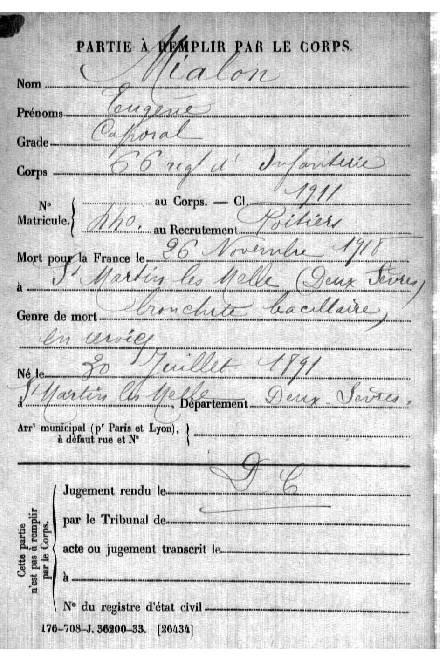 PARTIE À REMPLIR PAR LE CORPS.
Nom Mialon
Prénoms Eugène
Grade Caporal
Corps 66 regt d' Infanterie
N° Matricule. au Corps. — Cl. 1911
440. au Recrutement Poitiers
Mort pour la France le 26 Novembre 1918
à St Martin les Melle (Deux Sèvres)
Genre de mort bronchite bacillaire,
en service
Né le 20 Juillet 1891
à St Martin les Melle, Département Deux-Sèvres.
Arrt municipal (pr Paris et Lyon),
à défaut rue et N°
D C
Cette partie n'est pas à remplir par le Corps.
Jugement rendu le
par le Tribunal de
acte ou jugement transcrit le
à
N° du registre d'état civil
176-708-J. 36200-33. [26434]